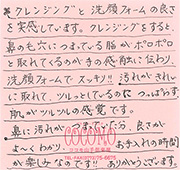 *クレンジングと洗顔フォームの良さ
を実感しています。クレンジングをすると、
鼻の毛穴につまっている脂がポロポロ
と取れてくるのが手の感触に伝わり、
洗顔フォームでスッキリ!! 汚れがきれい
に取れて、ツルッとしているのに、つっぱらず
肌がツルツルの感覚です。
鼻に汚れがつまっていたら、良さが
よくわかり、お手入れの時間
が楽しみなです!! ありがとうございます。
COCOMO
ココモ山子田薬局
TEL.FAX(0772)75-0075